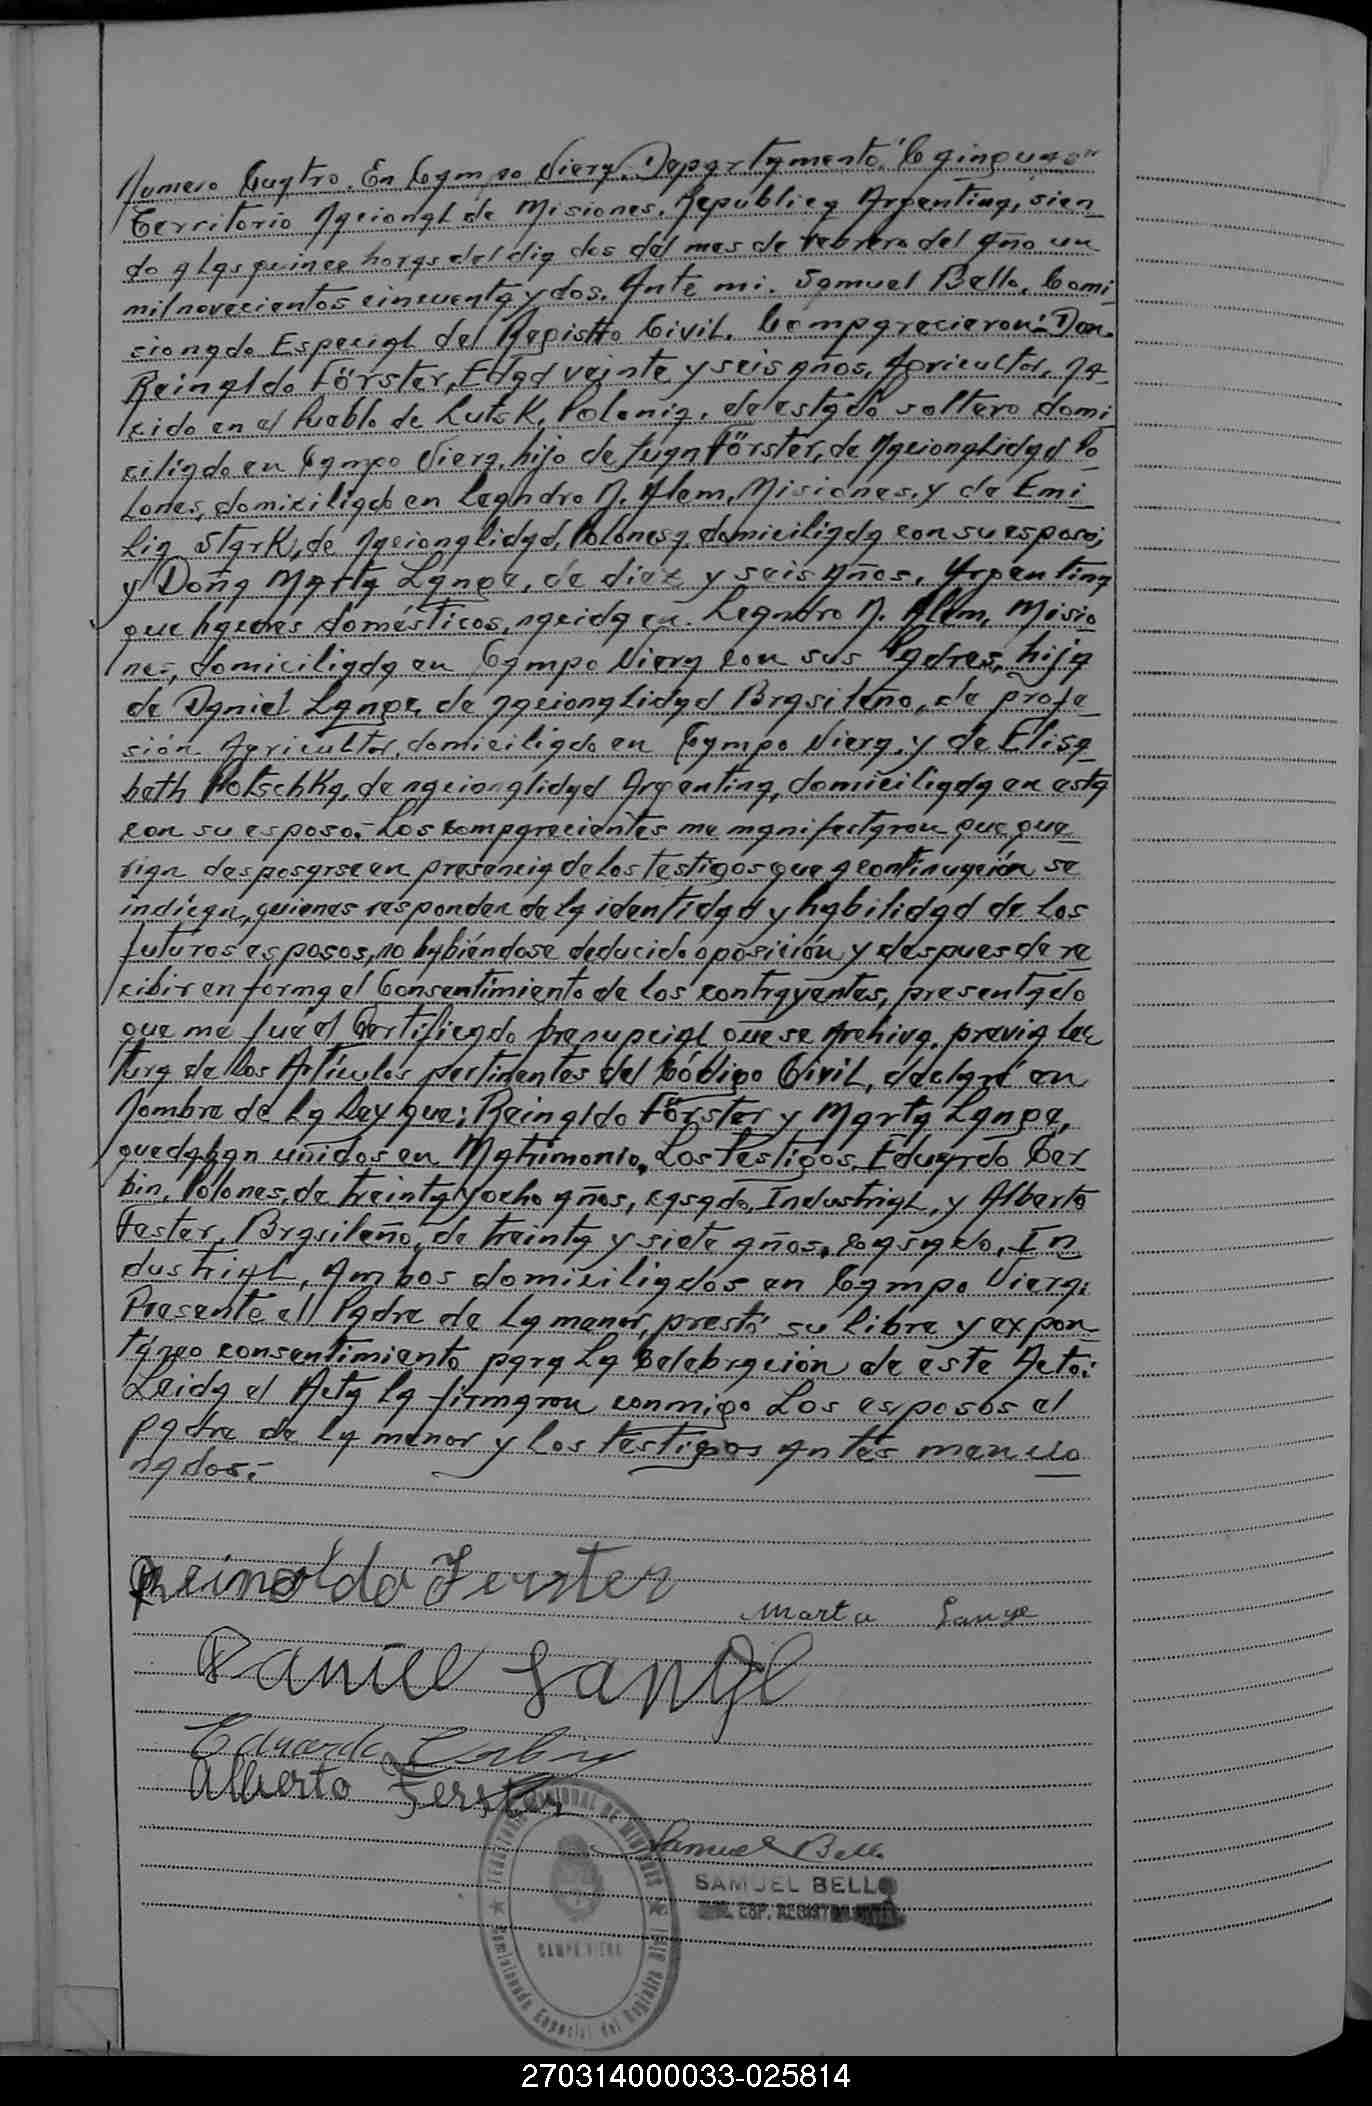 Numero Cuatro. En Campo Viera, Departamento "Cainguas"
Territorio Nacional de Misiones, Republica Argentina, sien_
do a las quince horas del dia dos del mes de Febrero del año un
mil novecientos cincuenta y dos. Ante mi. Samuel Bello, Comi_
sionado Especial del Registro Civil. Comparecieron: Don.
Reinaldo Förster, Edad veinte y seis años, Agricultor, na_
cido en el Pueblo de Lutzk, Polonia, de estado soltero domi_
ciliado en Campo Viera, hijo de Juan Förster, de Nacionalidad Po_
lones, domiciliado en Leandro N. Alem, Misiones, y de Emi_
lia Stark, de Nacionalidad, Polonesa, domiciliada con su esposo;
y Doña Marta Lange, de diez y seis Años, Argentina
que haceres domésticos, nacida en Leandro N. Alem, Misio_
nes, domiciliada en Campo Viera con sus Padres, hija
de Daniel Lange, de nacionalidad Brasileño, de profe_
sión Agricultor, domiciliado en Campo Viera, y de Elisa_
beth Potschka, de nacionalidad Argentina, domiciliada en esta
con su esposo.- Los comparecientes me manifestaron que que_
rian desposarse en presencia de los testigos que a continuación se
indican, quienes responden de la identidad y habilidad de los
futuros esposos, no habiéndose deducido oposición y despues de re_
cibir en forma el Consentimiento de los contrayentes, presentado
que me fué el Certificado prenupcial que se Archiva, previa lec_
tura de los Artículos pertinentes del Código Civil, declaré en
Nombre de la Ley que: Reinaldo Förster y Marta Lange,
quedaban unidos en Matrimonio. Los Testigos Eduardo Cer_
bin, Polones, de treinta y ocho años, casado, Industrial, y Alberto
Fester, Brasileño, de treinta y siete años, casado, In_
dustrial, ambos domiciliados en Campo Viera:
Presente el Padre de la menor, prestó su libre y expon_
táneo consentimiento para la Celebración de este Acto:
Leida el Acta la firmaron conmigo Los esposos el
padre de la menor y los testigos antes mencio_
nados:-
Reinoldo Ferster
Marta Lange
Daniel Lange
Eduardo Cerbin
Alberto Ferster
Samuel Bello
SAMUEL BELLO
ESP. REGISTRO CIVIL
TERRITORIO NACIONAL DE MISIONES
CAMPO VIERA
Comisionado Especial del Registro Civil
270314000033-025814